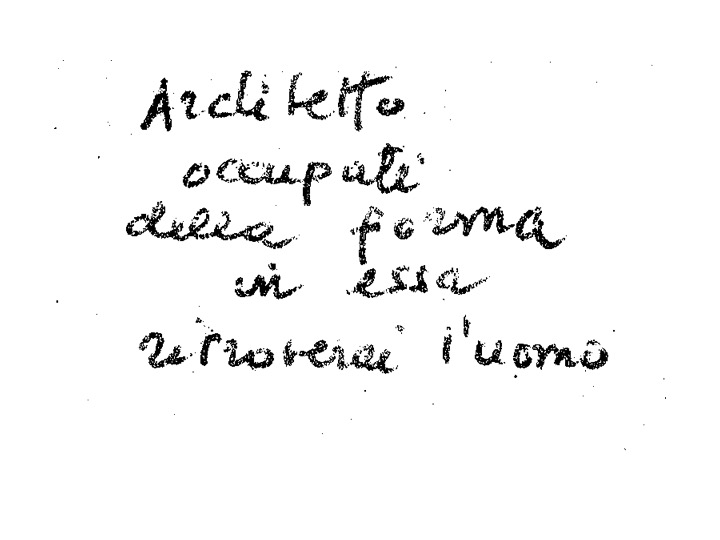 Architetto
occupati
della forma
in essa
ritroverai l'uomo